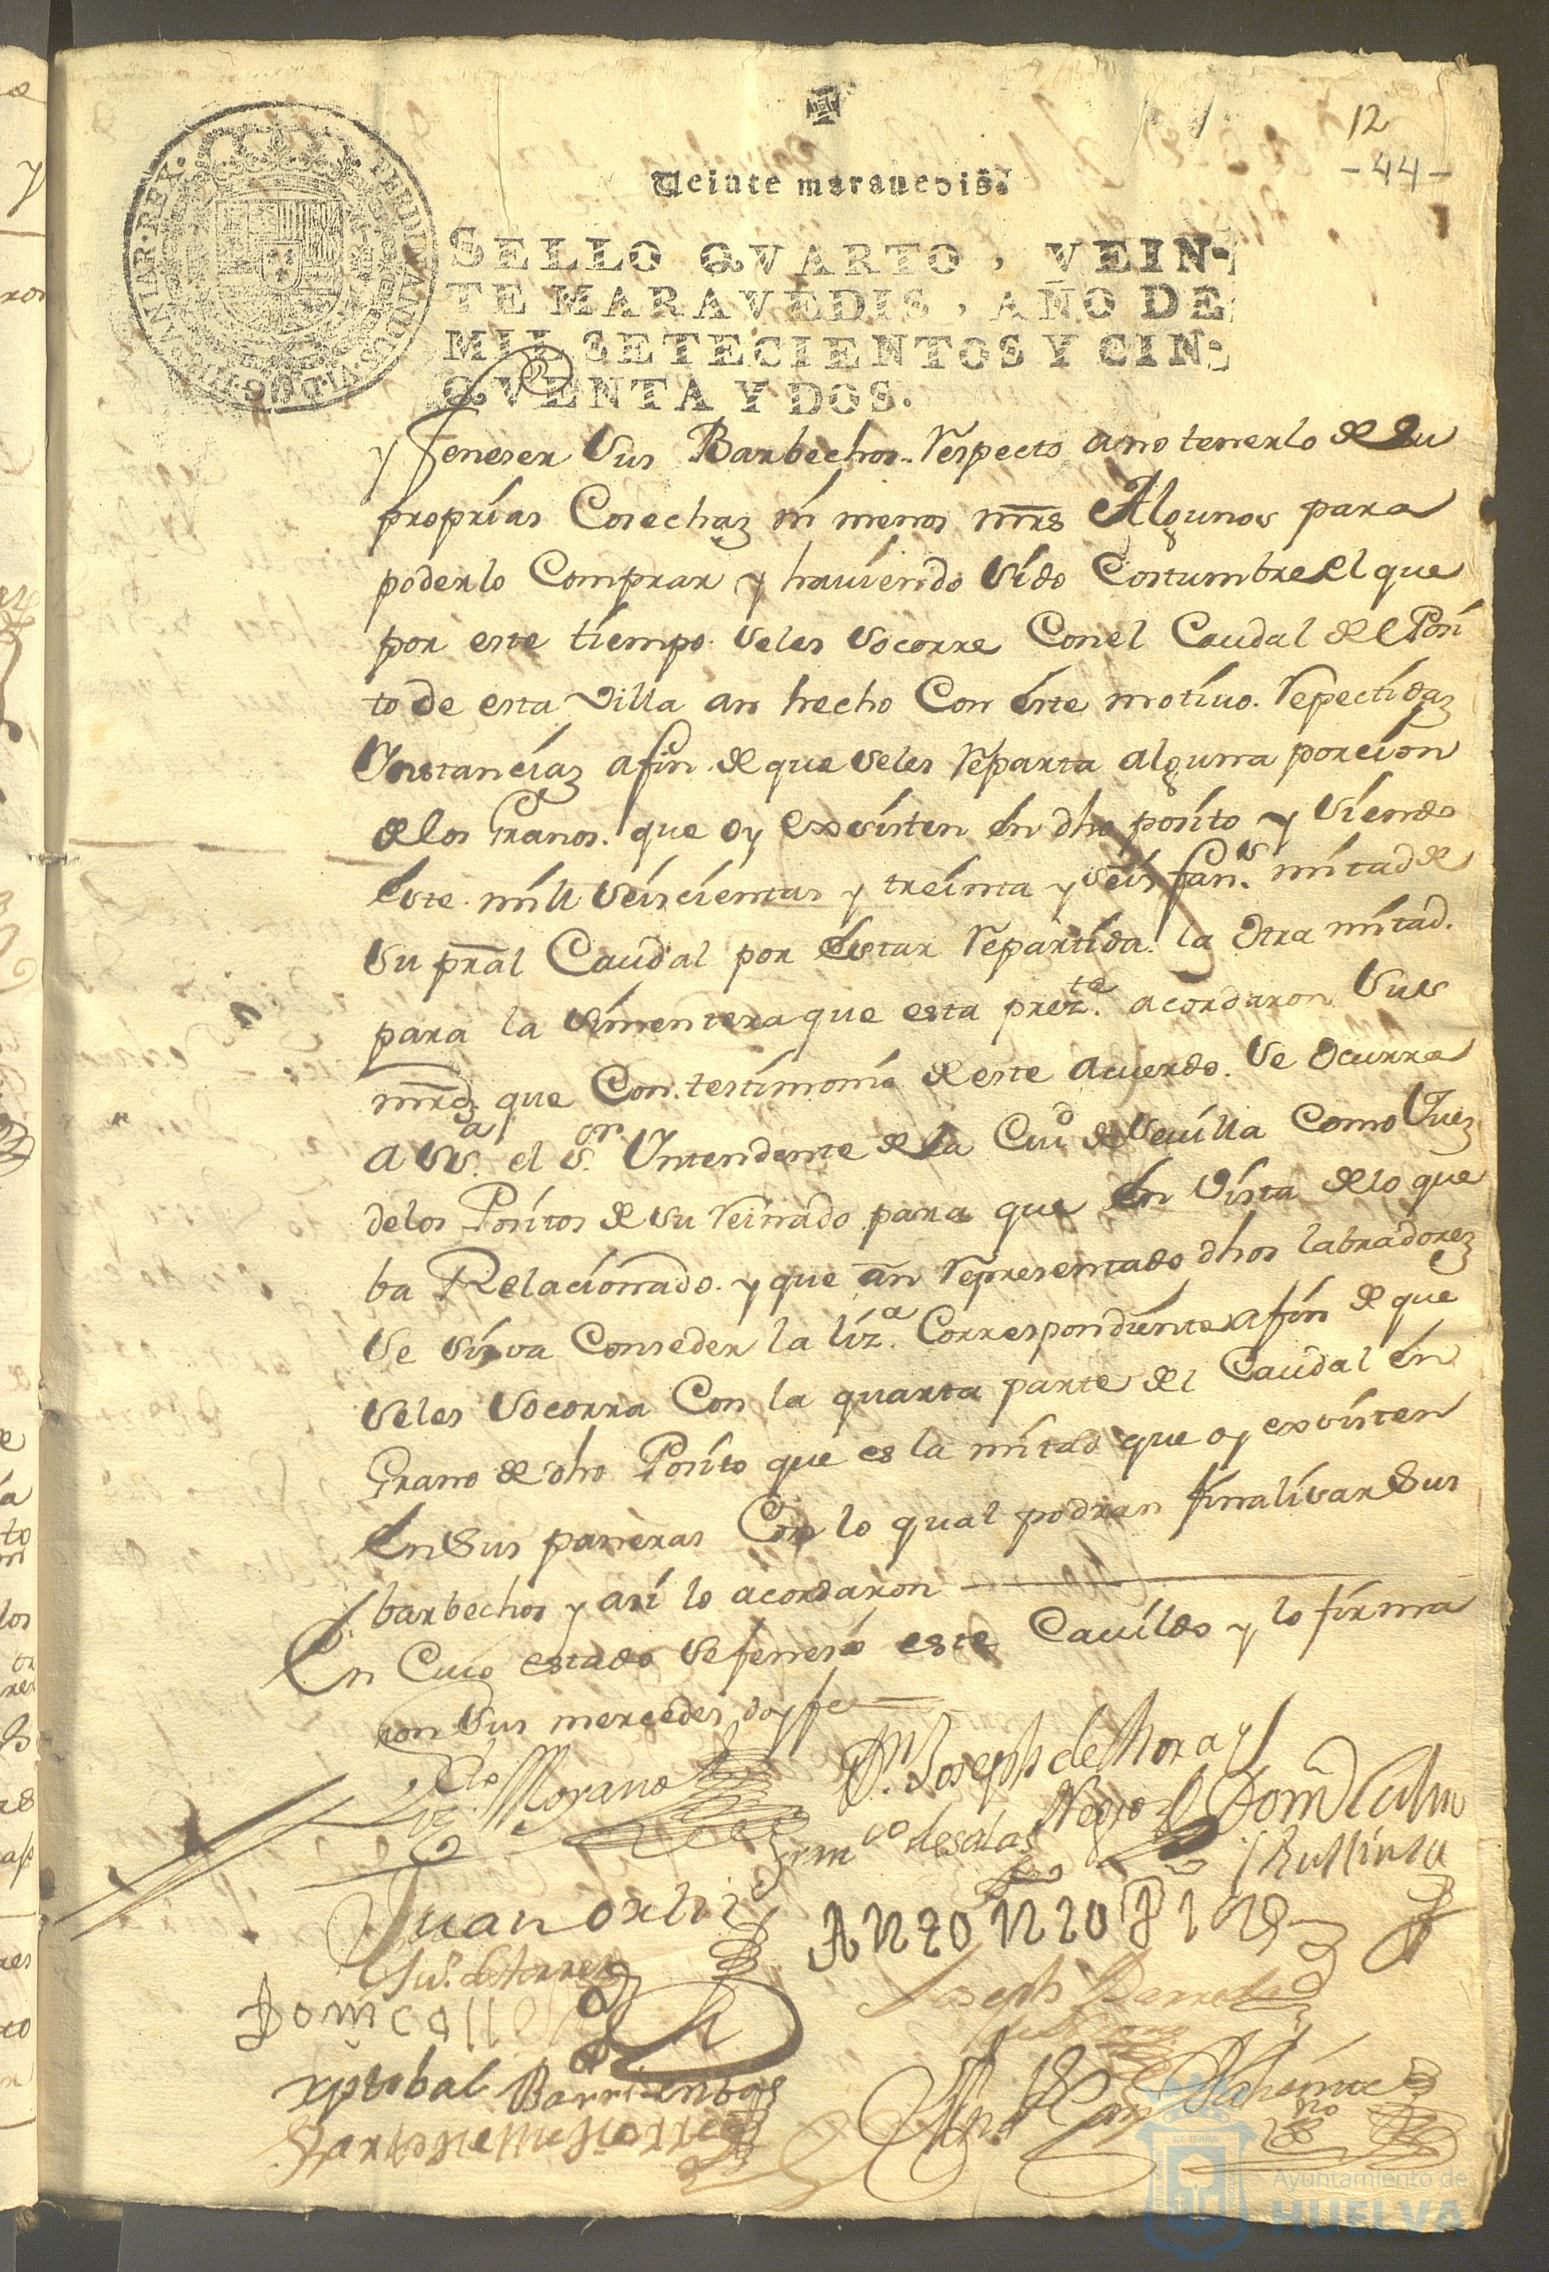 12
-44-
Veinte marauedis.
FERDINANDVS.VI.D.G.HISPANIAR.REX.
SELLO QVARTO, VEIN-
TE MARAVEDIS, AÑO DE
MIL SETECIENTOS Y CIN-
QVENTA Y DOS.
y feneser sus Barbechos. respecto ano tenerlo de su
proprias Cosechas ni menos mrs Algunos para
poderlo Comprar y hauiendo sido Costumbre el que
por este tiempo seles socorre Conel Caudal de el Posi
to de esta villa an hecho Con este motiuo. repectidas
Instancias afin de que seles reparta alguna porcion
de los Granos. que oy exsisten en dho posito y siendo
este mill seiscientas y treinta y seis fans. mitad de
su pral Caudal por estar repartida la otra mitad.
para la simentera que esta prezte. acordaron sus
mrds que Con testimonio de este acuerdo. se ocurra
a ssa. el sor. Intendente de la Ciud de Seuilla Como Juez
delos Positos de su reinado para que en vista de lo que
ba Relacionado. y que an representado dhos labradores
se sirva Conseder la liza. Correspondiente afin de que
seles socorra Con la quarta parte del Caudal en
Grano de dho Posito que es la mitad que oy exsisten
en sus paneras Con lo qual podran finalisar sus
barbechos y asi lo acordaron
En Cuio estado se fenesio este Cauildo y lo firma
ron sus mercedes doy fee
Lizdo Moyano
Dn. Joseph de Mora y
Negro
Franco de salas
Domo
Juan ortiz
Antonio
Joseph Barreda
xptobal Barrientos
Ayuntamiento de
HUELVA